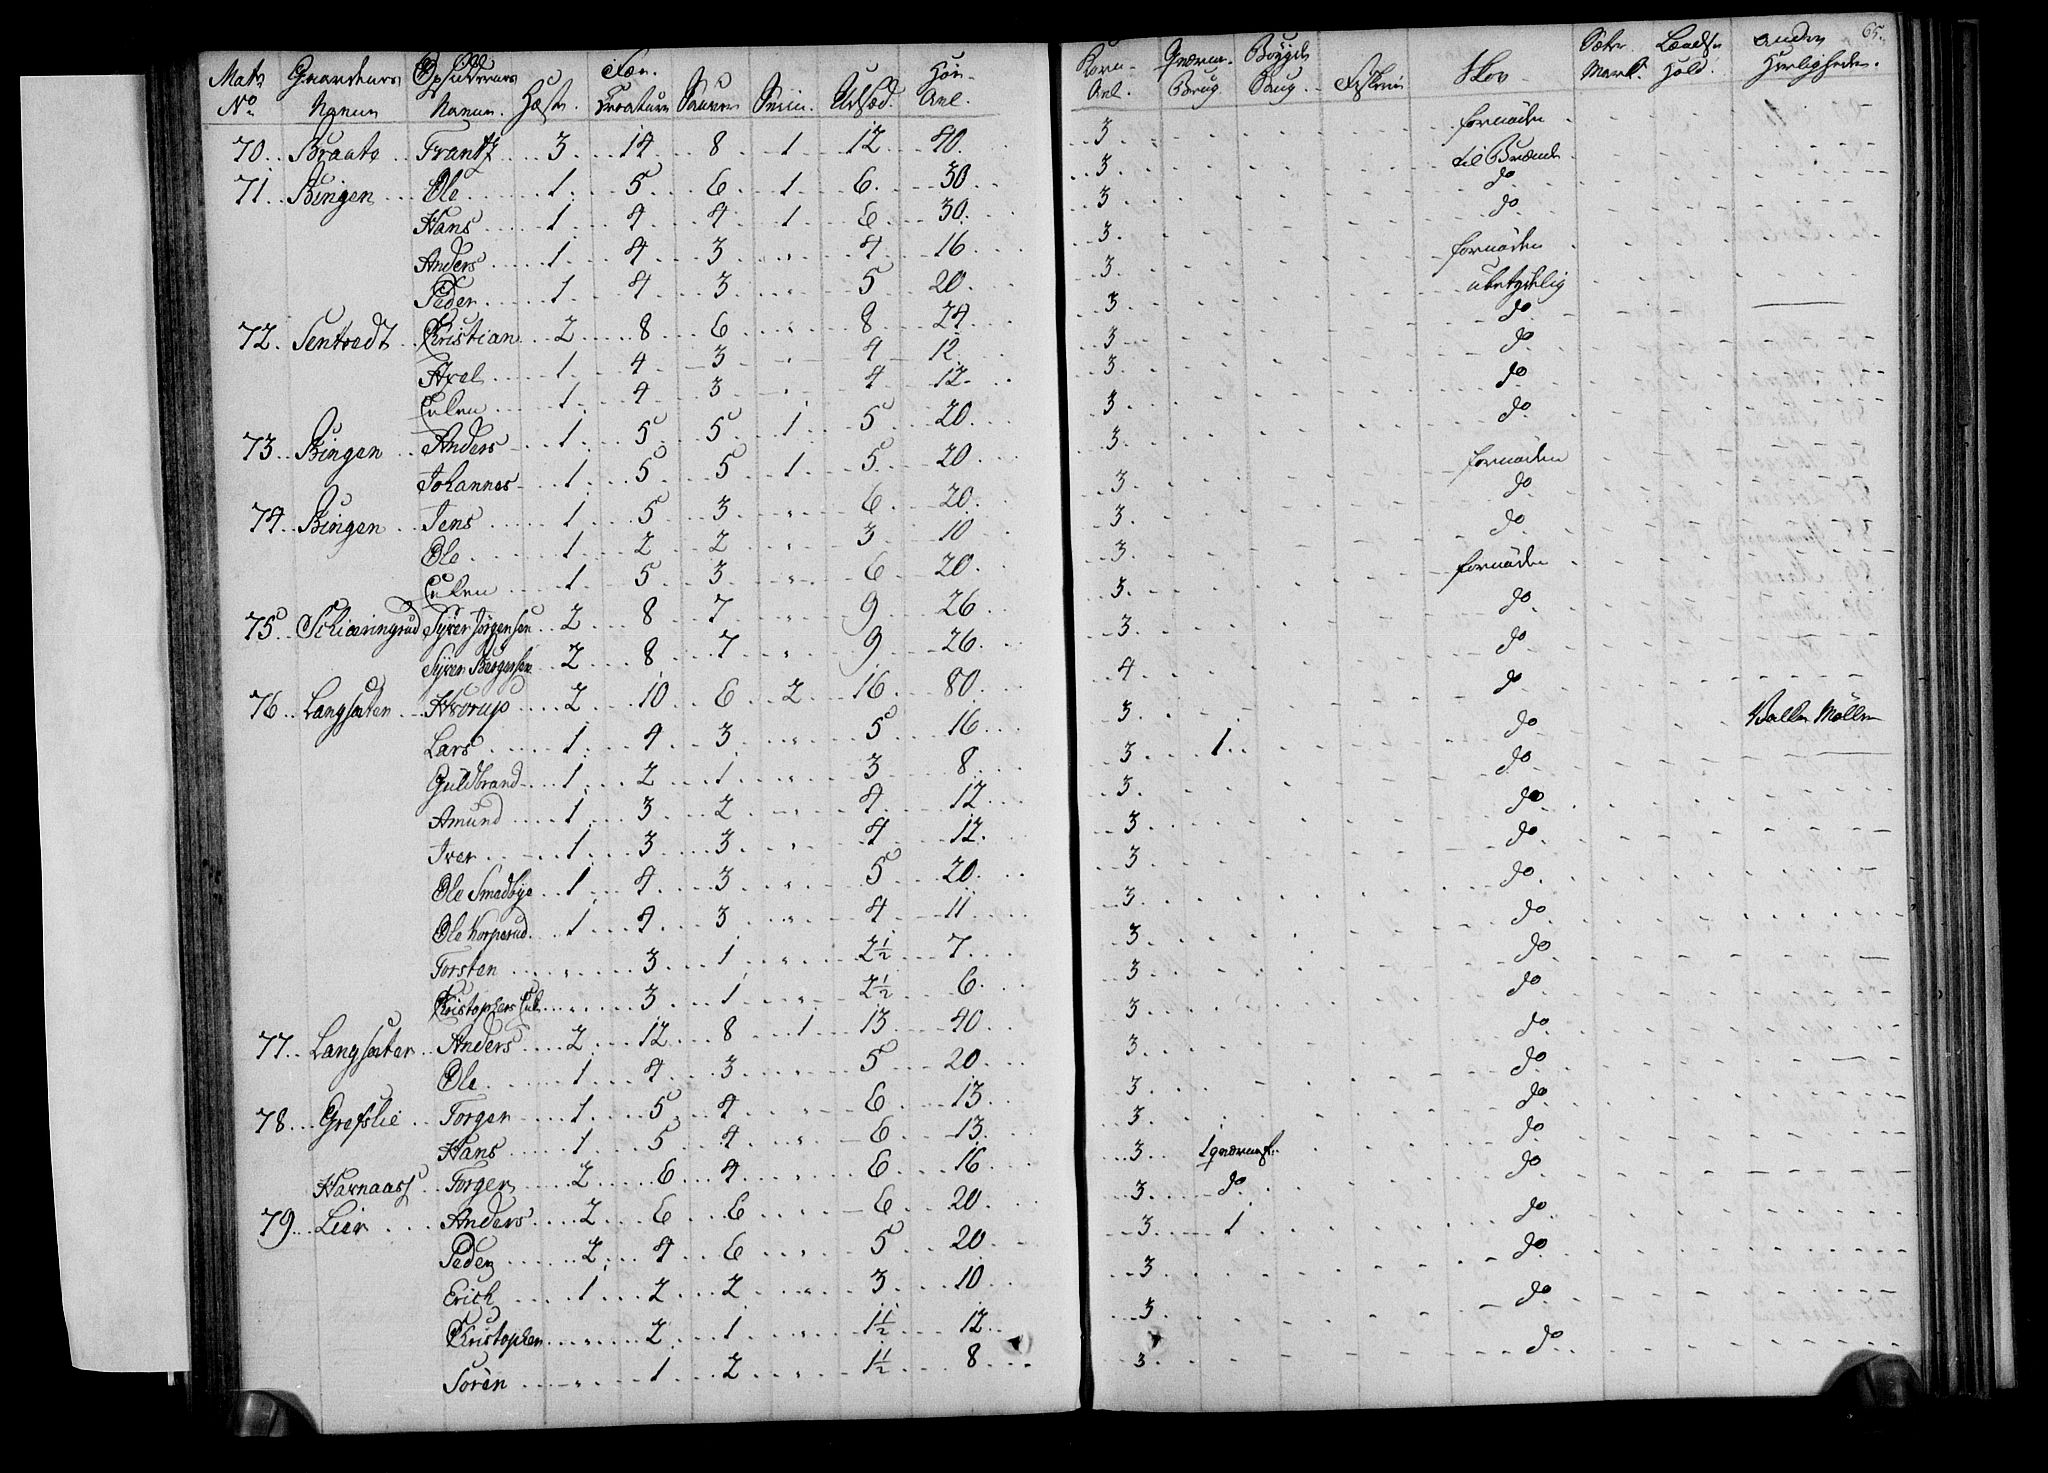 65.
Matr No Gaardenes Navne Opsiddernes Navne Heste Fæe Creature Sauer Sviin Udsæd Høe Avl Korn Avl Qværne Brug Bøygde Brug Fiskerie Skov Sæter Mark Landsz Hold Andre Herligheder
70 Braate Frantz 3 14 8 1 12 40 3 fornøden
71 Bingen Ole 1 5 6 1 6 30 3 til Brænde
Hans 1 4 4 1 6 30 3 do
Anders 1 4 3 " 4 16 3 do
Peder 1 4 3 " 5 20 3 fornøden
72 Sentvedt Christian 2 8 6 " 8 24 3 ubetydelig
Axel 1 4 3 " 4 12 3 do
Enken 1 4 3 " 4 12 3 do
73 Bingen Anders 1 5 5 1 5 20 3 do
Johannes 1 5 5 1 5 20 3 do
74 Bingen Jens 1 5 3 " 6 20 3 fornøden
Ole 1 2 2 " 3 10 3 do
Enken 1 5 3 " 6 20 3 do
75 Schiæringrud Syver Jørgensen 2 8 7 " 9 26 3 fornøden
Syver Børgersen 2 8 7 " 9 26 3 do
76 Langsæter Hvorup 2 10 6 2 16 80 4 do
Lars 1 4 3 " 5 16 3 do
Guldbrand 1 2 1 " 3 8 3 1 do Balke Møllen
Amund 1 3 2 " 4 12 3 do
Iver 1 3 3 " 4 12 3 do
Ole Smedbye 1 4 3 " 5 20 3 do
Ole Korperud 1 4 3 " 4 11 3 do
Torsten " 3 1 " 2½ 7 3 do
Christophers Enk " 3 1 " 2½ 6 3 do
77 Langsæter Anders 2 12 8 1 13 40 3 do
Ole 1 4 3 " 5 20 3 do
78 Grefslie Torger 1 5 4 " 6 13 3 do
Hans 1 5 4 " 6 13 3 do
Harnaas Torger 2 6 4 " 6 16 3 1 qværnest. do
79 Lier Anders 2 6 6 " 6 20 3 do do
Peder 2 4 6 " 5 20 3 1 do
Erich 1 2 2 " 3 10 3 do
Christopher " 2 1 " 1½ 12 3 do
Søren " 1 2 " 1½ 8 3 do